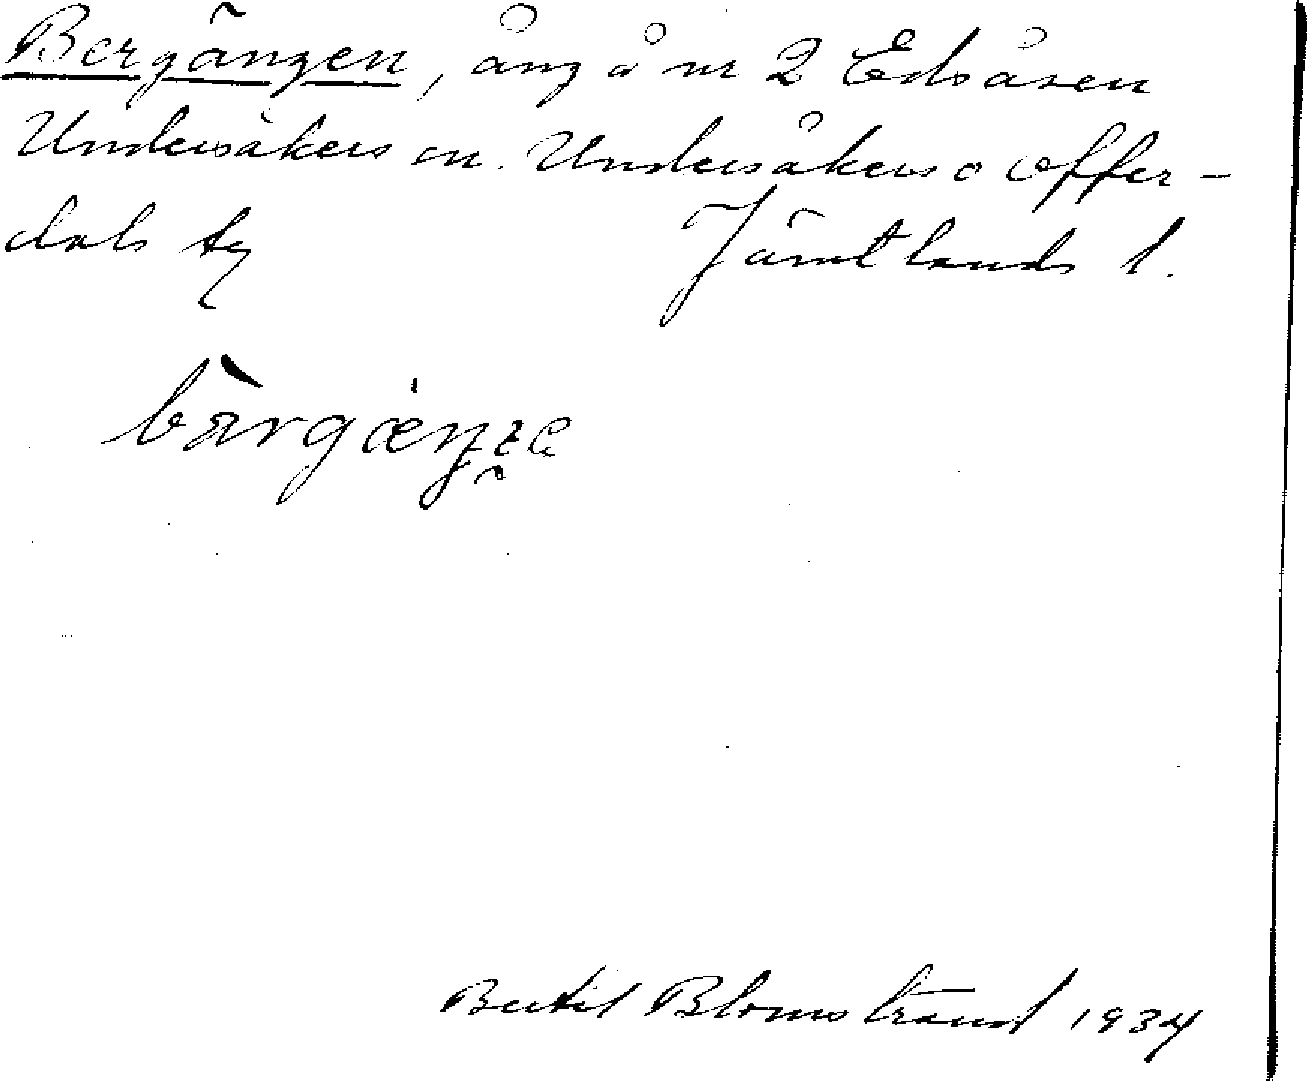 Bergängen, äng å nr 2 Edsåsen
Undersåkers sn. Undersåkers o Offer-
dals tg Jämtlands l.
Bertil Blomstrand 1934